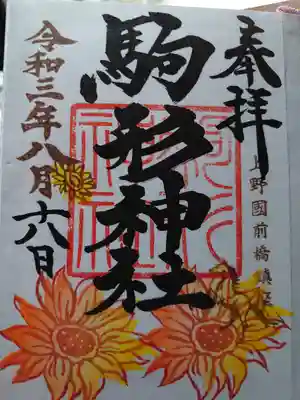 奉拝
上野國前橋鎮座
駒形神社
令和三年八月
六日